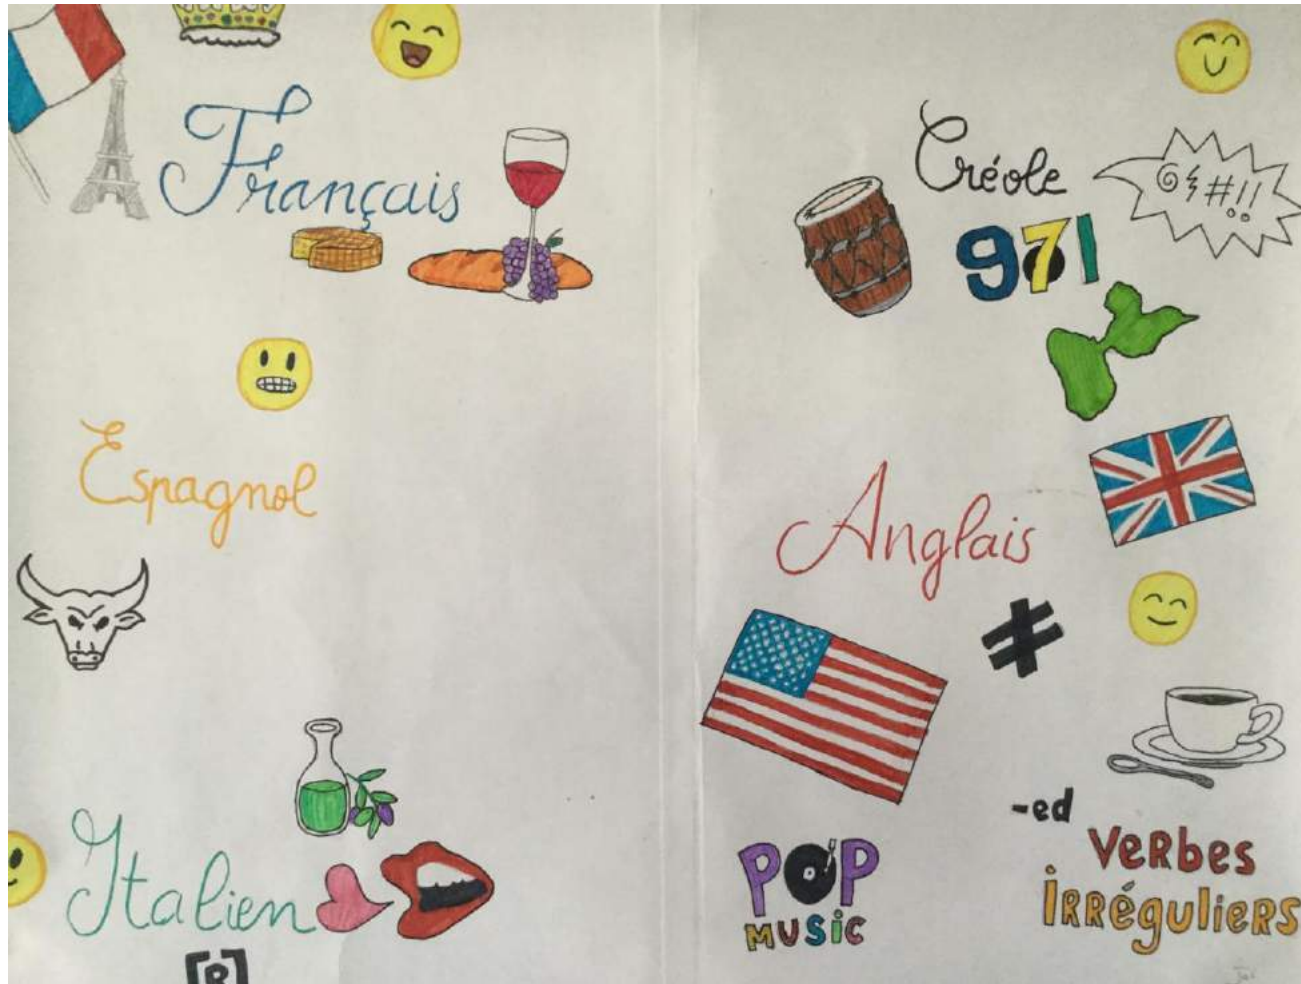 Français
Espagnol
Italien
[R]
Créole
@§#!!
971
Anglais
≠
-ed
Verbes
irréguliers
POP
MUSiC